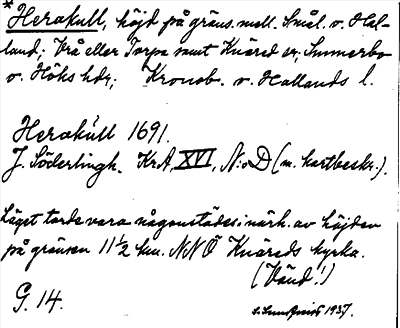 * Herakull, höjd på gräns. mell. Smål. o. Hal-
land; Vrå eller Torpa samt Knäred sr; Sunnerbo
o. Höks hdr; Kronob. o. Hallands l.
Herakull 1691.
J. Söderlingh. KrA, XVI, N:o D (m. kartbeskr.).
Läget torde vara någonstädes i närh. av höjden
på gränsen 11½ km. NNÖ Knäreds kyrka.
(Vänd!)
G. 14.
1937.